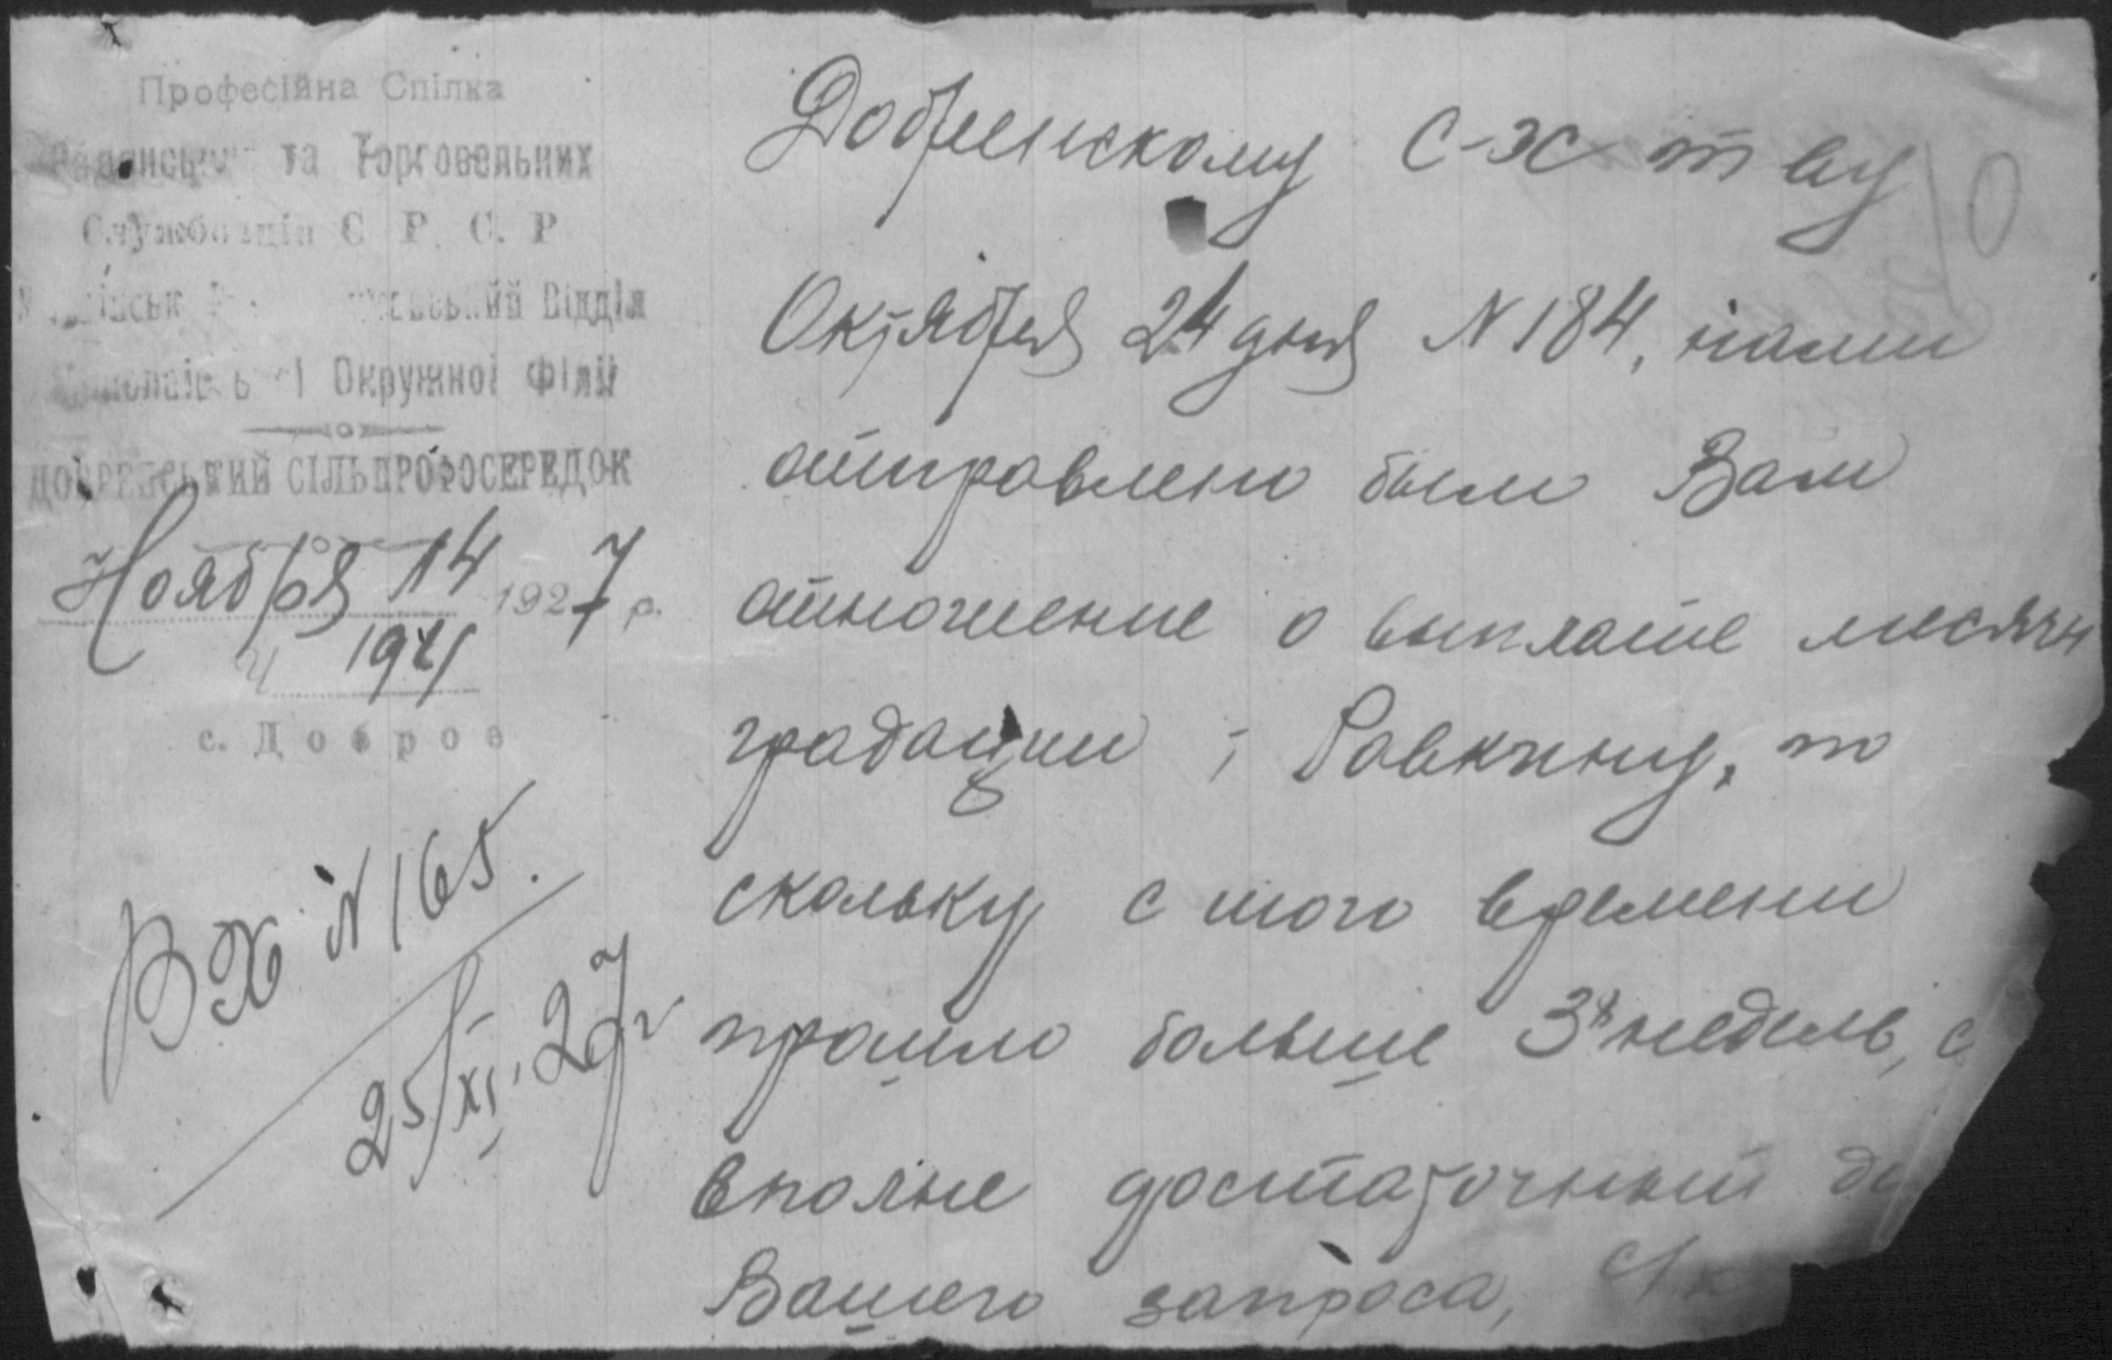 Професійна Спілка
та Торговельних
Службовців С. Р. С. Р
Відділ
Окружної Філії
ДОБРЕНСЬКИЙ СІЛЬПРОФОСЕРЕДОК
Ноября 14 1927 р.
с. Доброе
Вх N 165.
25/XI. 27 г
Добренскому С-Х Т-ву
Октября 24 дня N 184, нами
отправлено было Вам
отношение о выплате
Равкину, по
скольку с того времени
прошло больше 3х недель, с
вполне достаточный
Вашего запроса,